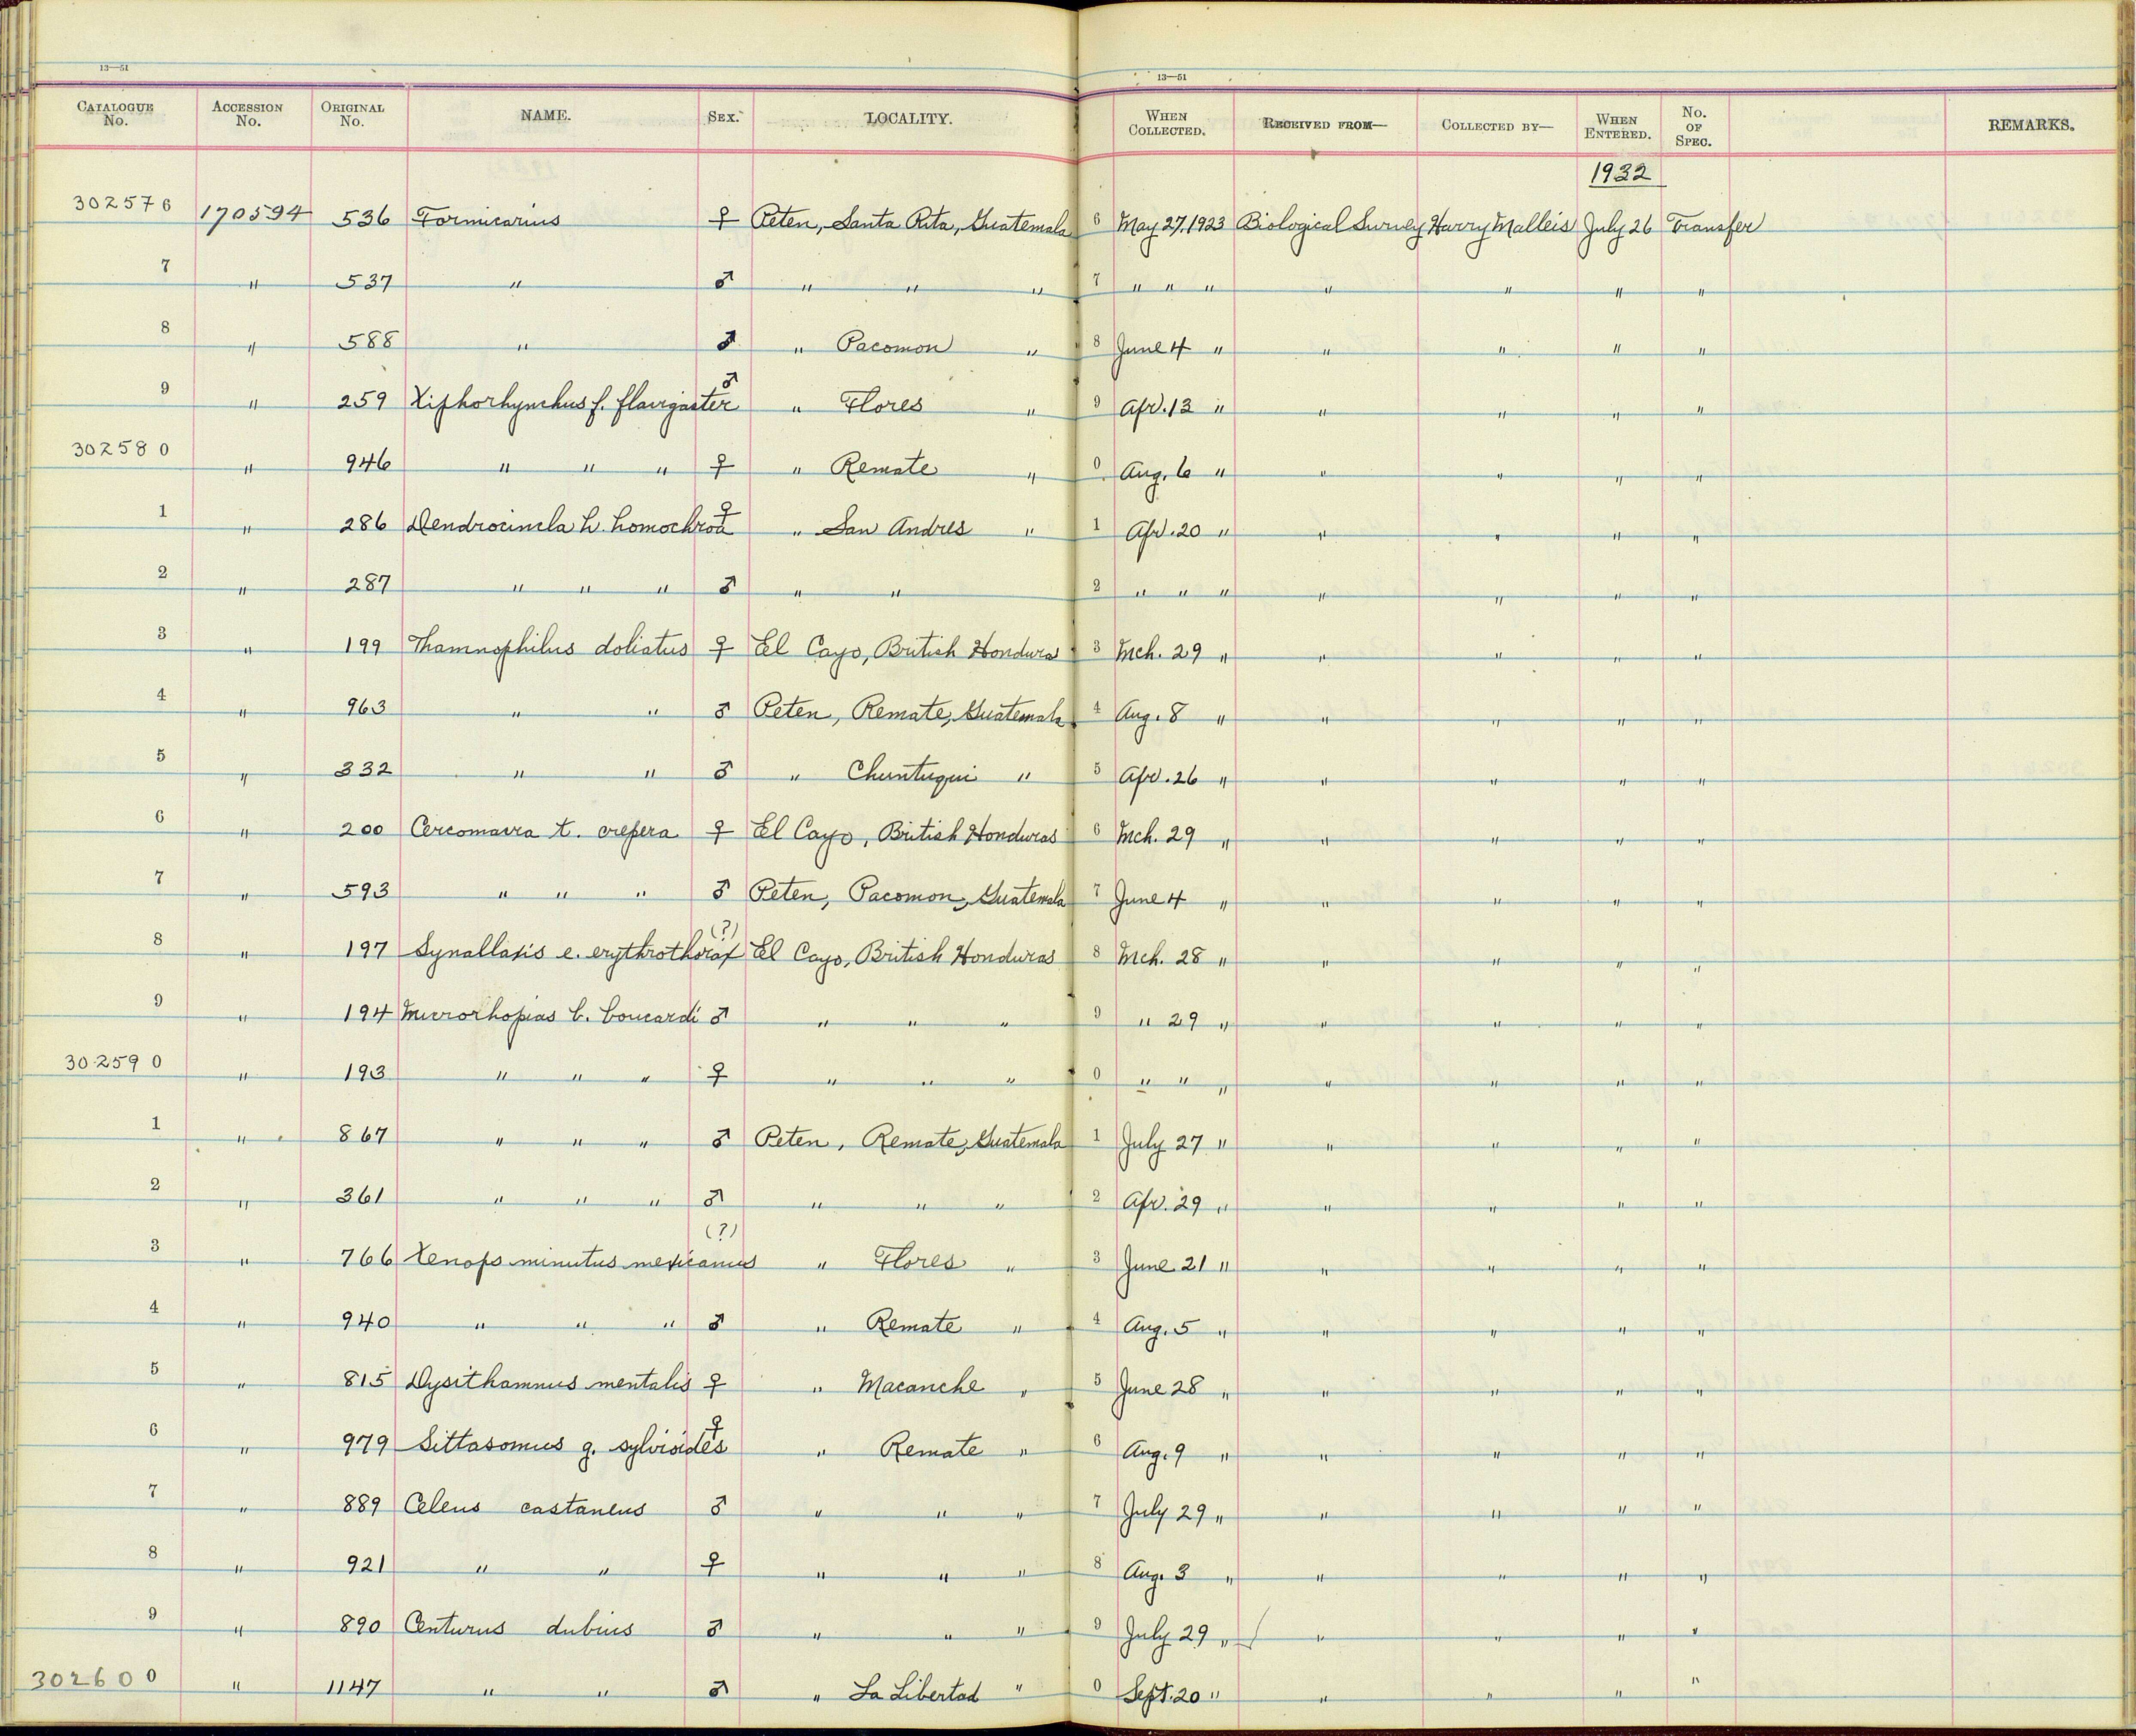 13—51 13—51
CATALOGUE No. ACCESSION No. ORIGINAL No. NAME. SEX. LOCALITY. WHEN COLLECTED. RECEIVED FROM— COLLECTED BY— WHEN ENTERED. No. OF SPEC. REMARKS.
1932
302576 170594 536 Formicarius ♀ Peten, Santa Rita, Guatemala 6 May 27, 1923 Biological Survey Harry Malleis July 26 Transfer
7 " 537 " ♂ " " " 7 " " " " " " "
8 " 588 " ♂ " Pacomon " 8 June 4 " " " " "
9 " 259 Xiphorhynchus f. flavigaster ♂ " Flores " 9 Apr. 13 " " " " "
302580 " 946 " " " ♀ " Remate " 0 Aug. 6 " " " " "
1 " 286 Dendrocincla h. homochroa ♀ " San Andres " 1 Apr. 20 " " " " "
2 " 287 " " " ♂ " " 2 " " " " " " "
3 " 199 Thamnophilus doliatus ♀ El Cayo, British Honduras 3 Mch. 29 " " " " "
4 " 963 " " ♂ Peten, Remate, Guatemala 4 Aug. 8 " " " " "
5 " 332 " " ♂ " Chuntuqui " 5 Apr. 26 " " " " "
6 " 200 Cercomacra t. crepera ♀ El Cayo, British Honduras 6 Mch. 29 " " " " "
7 " 593 " " " ♂ Peten, Pacomon, Guatemala 7 June 4 " " " " "
8 " 197 Synallaxis e. erythrothorax (?) El Cayo, British Honduras 8 Mch. 28 " " " " "
9 " 194 Microrhopias b. boucardi ♂ " " " 9 " 29 " " " " "
302590 " 193 " " " ♀ " " " 0 " " " " " " "
1 " 867 " " " ♂ Peten, Remate, Guatemala 1 July 27 " " " " "
2 " 361 " " " ♂ " " " 2 Apr. 29 " " " " "
3 " 766 Xenops minutus mexicanus (?) " Flores " 3 June 21 " " " " "
4 " 940 " " " ♂ " Remate " 4 Aug. 5 " " " " "
5 " 815 Dysithamnus mentalis ♀ " Macanche " 5 June 28 " " " " "
6 " 979 Sittasomus g. sylvioides ♀ " Remate " 6 Aug. 9 " " " " "
7 " 889 Celeus castaneus ♂ " " " 7 July 29 " " " " "
8 " 921 " " ♀ " " " 8 Aug. 3 " " " " "
9 " 890 Centurus dubius ♂ " " " 9 July 29 " " " " "
302600 " 1147 " " ♂ " La Libertad " 0 Sept. 20 " " " " "